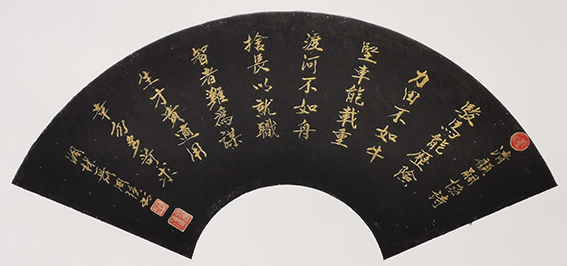 清顧嗣協詩
駿馬能歷險
力田不如牛
堅車能載重
渡河不如舟
捨長以就職
智者難為謀
生才貴適用
幸勿多苛求